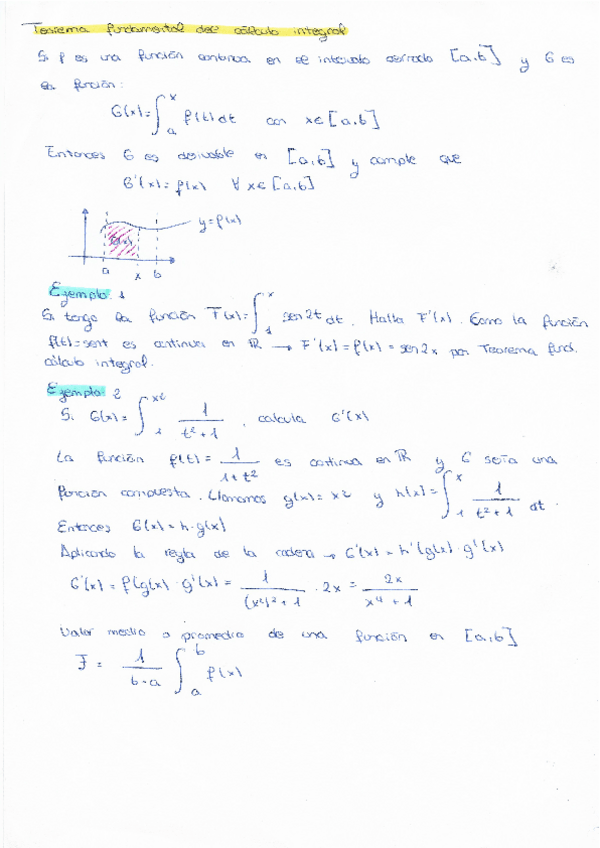 Teorema fundamental del cálculo integral
Si f es una función continua en el intervalo cerrado [a,b] y G es
la función:
G(x)=∫ₐˣ f(t)dt con x∈[a,b]
Entonces G es derivable en [a,b] y cumple que
G'(x)=f(x) ∀ x∈[a,b]
y=f(x)
a x b
Ejemplo 1
Si tengo la función F(x)=∫₁ˣ sen2t dt. Halla F'(x). Como la función
f(t)=sent es continua en ℝ → F'(x)=f(x)=sen2x por Teorema fund.
cálculo integral.
Ejemplo: 2
Si G(x)=∫₁^x² 1/(t²+1), calcula G'(x)
La función f(t)=1/(1+t²) es continua en ℝ y G sería una
función compuesta. Llamamos g(x)=x² y h(x)=∫₁ˣ 1/(t²+1) dt.
Entonces G(x)=h·g(x)
Aplicando la regla de la cadena → G'(x)=h'(g(x)·g'(x)
G'(x)=f(g(x)·g'(x)=1/((x²)²+1)·2x=2x/(x⁴+1)
Valor medio o promedio de una función en [a,b]
f̄ = 1/(b-a) ∫ₐᵇ f(x)